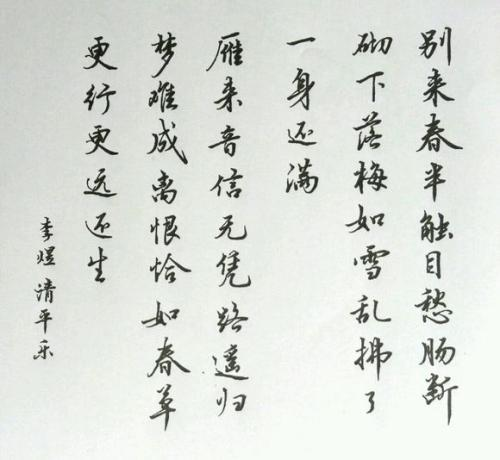 别来春半触目愁肠断
砌下落梅如雪乱拂了
一身还满
雁来音信无凭路遥归
梦难成离恨恰如春草
更行更远还生
李煜清平乐